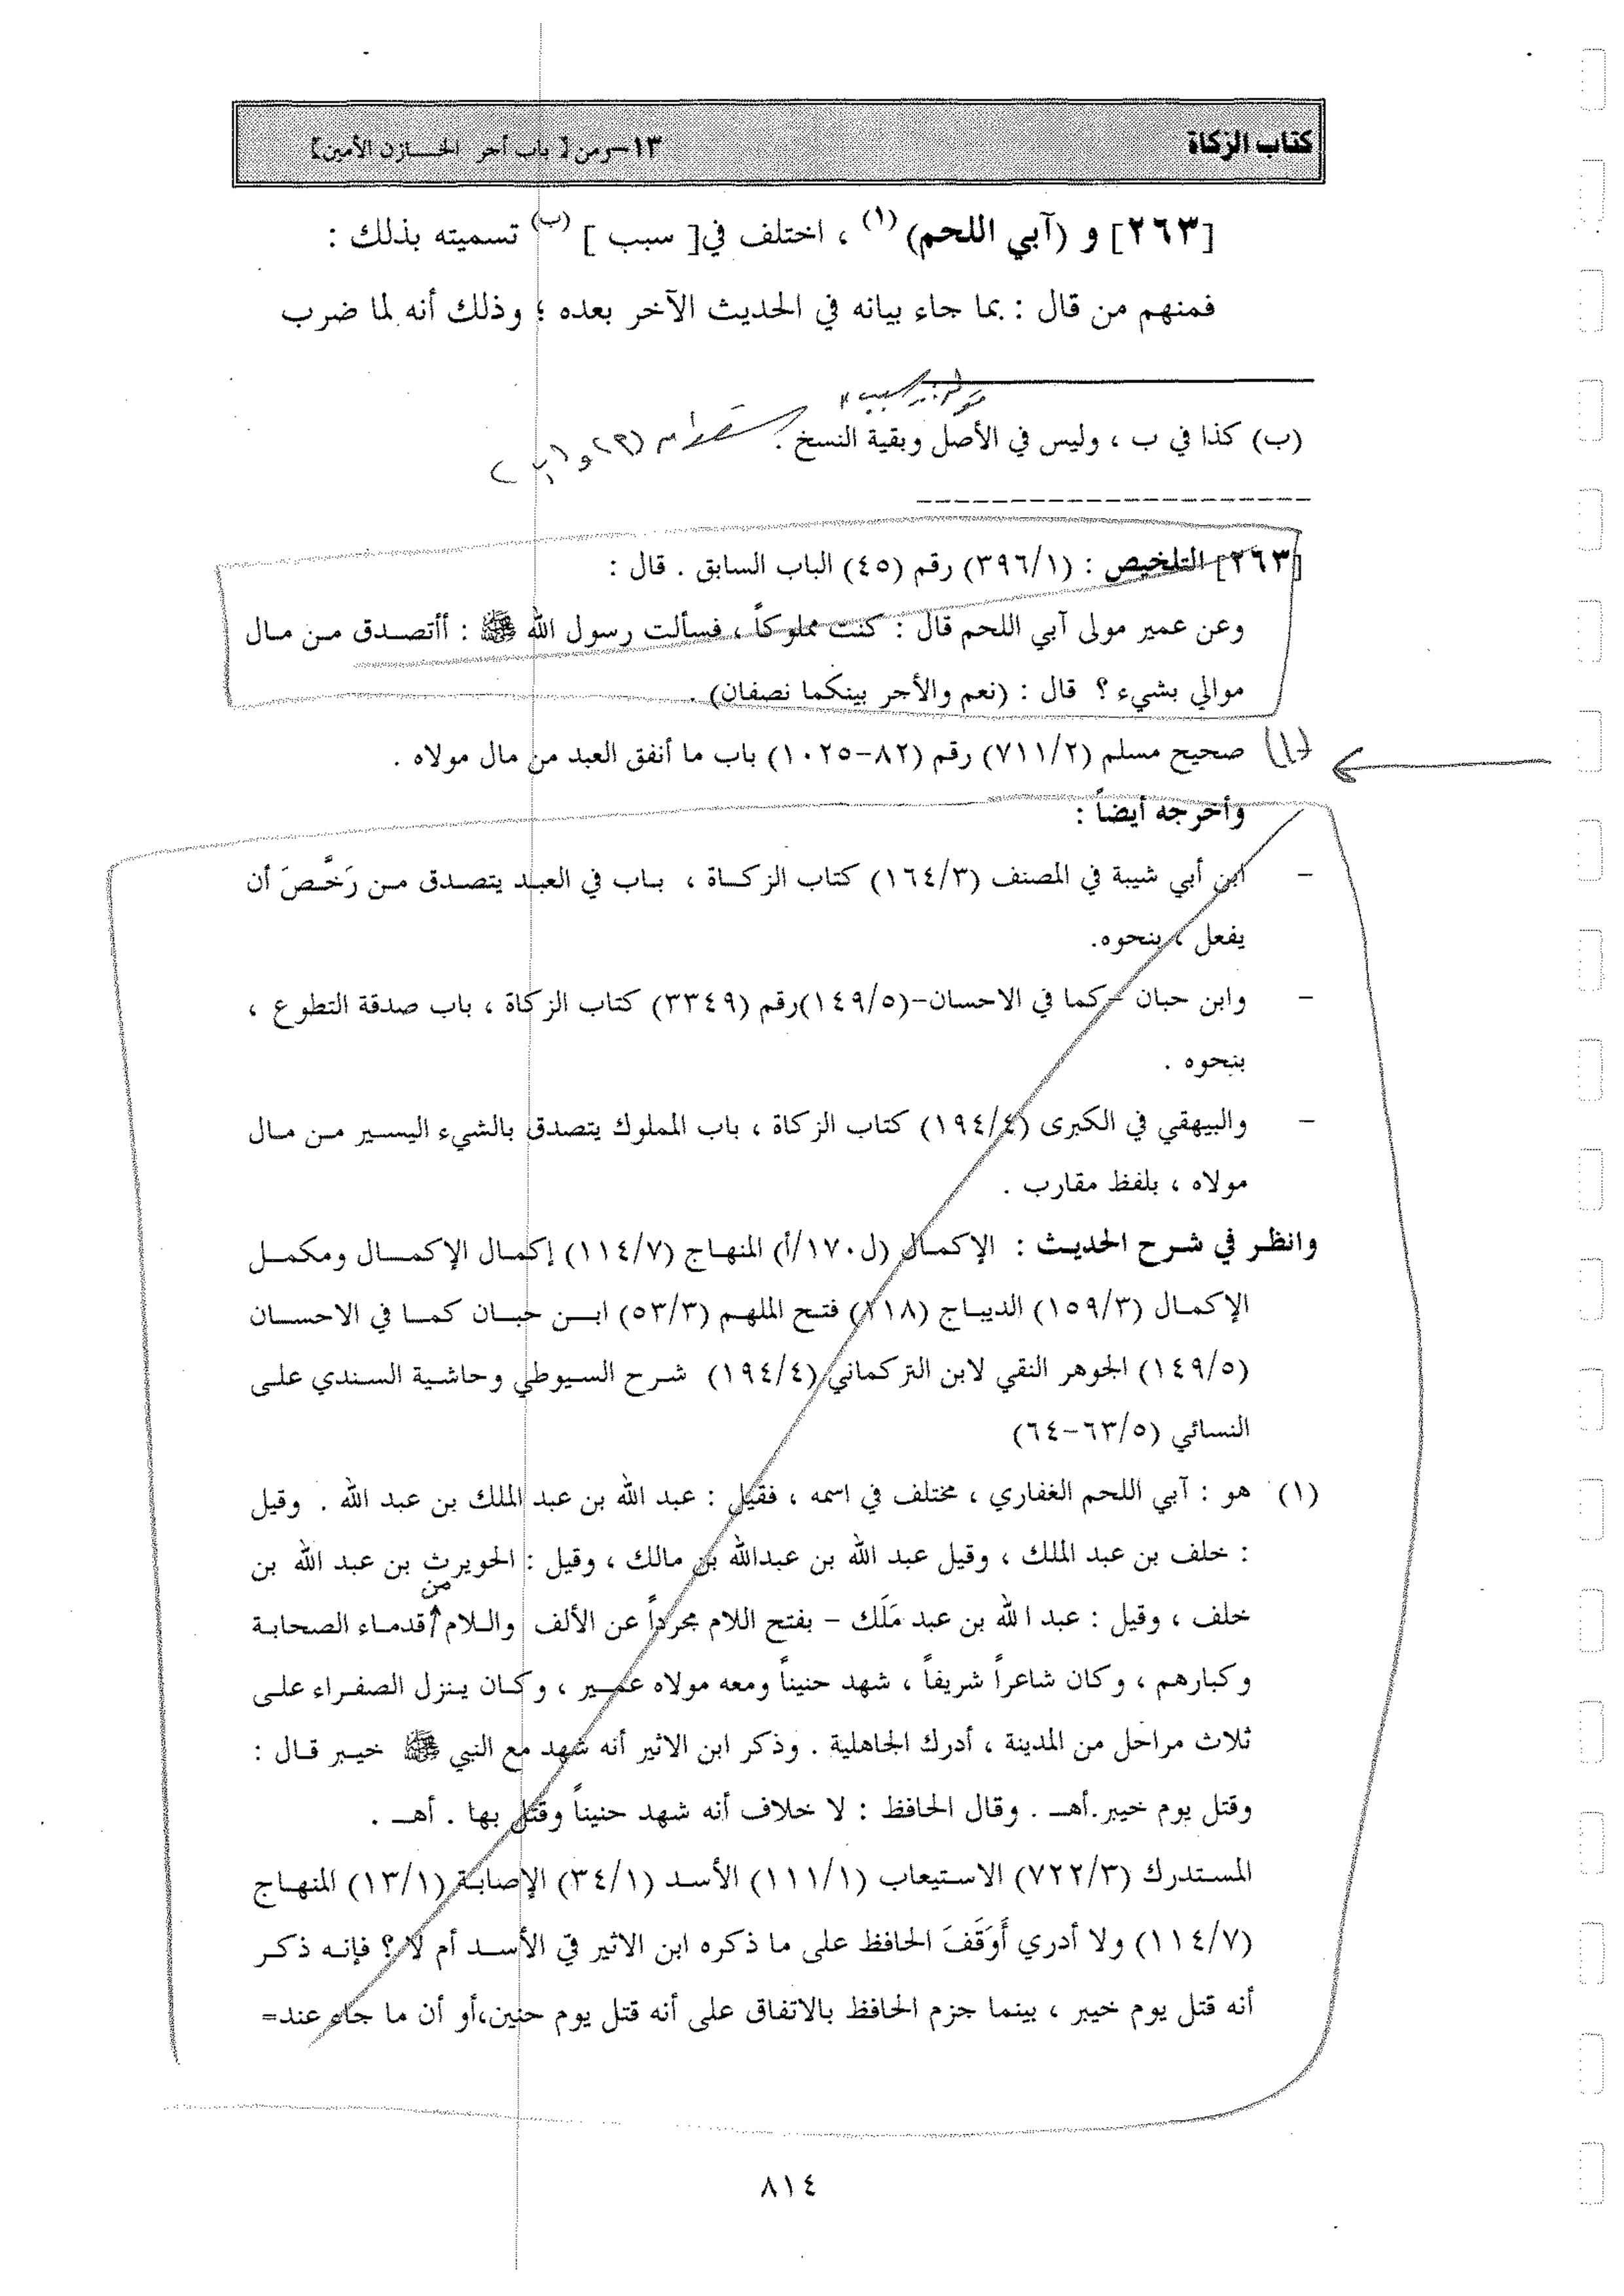 كتاب الزكاة
١٣-ومن [ باب أجر الخـازن الأمين]
[٢٦٣] و (آبي اللحم) (١) ، اختلف في[ سبب ] (ب) تسميته بذلك :
فمنهم من قال : بما جاء بيانه في الحديث الآخر بعده ؛ وذلك أنه لما ضرب
(ب) كذا في ب ، وليس في الأصل وبقية النسخ .
[٢٦٣] التلخيص : (٣٩٦/١) رقم (٤٥) الباب السابق . قال :
وعن عمير مولى آبي اللحم قال : كنت مملوكاً ، فسألت رسول الله ﷺ : أأتصدق من مال
موالي بشيء ؟ قال : (نعم والأجر بينكما نصفان) .
(١) صحيح مسلم (٧١١/٢) رقم (٨٢-١٠٢٥) باب ما أنفق العبد من مال مولاه .
وأخرجه أيضاً :
- ابن أبي شيبة في المصنف (١٦٤/٣) كتاب الزكاة ، باب في العبد يتصدق من رَخَّصَ أن
يفعل ، بنحوه.
- وابن حبان -كما في الاحسان-(١٤٩/٥)رقم (٣٣٤٩) كتاب الزكاة ، باب صدقة التطوع ،
بنحوه .
- والبيهقي في الكبرى (١٩٤/٤) كتاب الزكاة ، باب المملوك يتصدق بالشيء اليسير من مال
مولاه ، بلفظ مقارب .
وانظر في شرح الحديث : الإكمال (ل١٧٠/أ) المنهاج (١١٤/٧) إكمال الإكمال ومكمل
الإكمال (١٥٩/٣) الديباج (١١٨) فتح الملهم (٥٣/٣) ابن حبان كما في الاحسان
(١٤٩/٥) الجوهر النقي لابن التركماني (١٩٤/٤) شرح السيوطي وحاشية السندي على
النسائي (٦٣/٥-٦٤)
(١) هو : آبي اللحم الغفاري ، مختلف في اسمه ، فقيل : عبد الله بن عبد الملك بن عبد الله . وقيل
: خلف بن عبد الملك ، وقيل عبد الله بن عبدالله بن مالك ، وقيل : الحويرث بن عبد الله بن
خلف ، وقيل : عبد الله بن عبد مَلَك - بفتح اللام مجرداً عن الألف واللام من قدماء الصحابة
وكبارهم ، وكان شاعراً شريفاً ، شهد حنيناً ومعه مولاه عمير ، وكان ينزل الصفراء على
ثلاث مراحل من المدينة ، أدرك الجاهلية . وذكر ابن الاثير أنه شهد مع النبي ﷺ خيبر قال :
وقتل يوم خيبر.أهـ . وقال الحافظ : لا خلاف أنه شهد حنيناً وقتل بها . أهـ .
المستدرك (٧٢٢/٣) الاستيعاب (١١١/١) الأسد (٣٤/١) الإصابة (١٣/١) المنهاج
(١١٤/٧) ولا أدري أَوَقَفَ الحافظ على ما ذكره ابن الاثير في الأسد أم لا ؟ فإنه ذكر
أنه قتل يوم خيبر ، بينما جزم الحافظ بالاتفاق على أنه قتل يوم حنين،أو أن ما جاء عند=
٨١٤